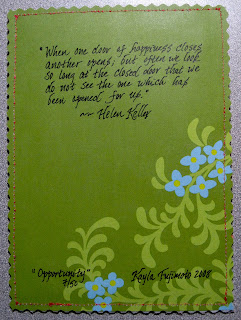 "When one door of happiness closes
another opens; but often we look
so long at the closed door that we
do not see the one which has
been opened for us."
~ Helen Keller
"Opportunity"
7/50
Kayla Fujimoto 2008